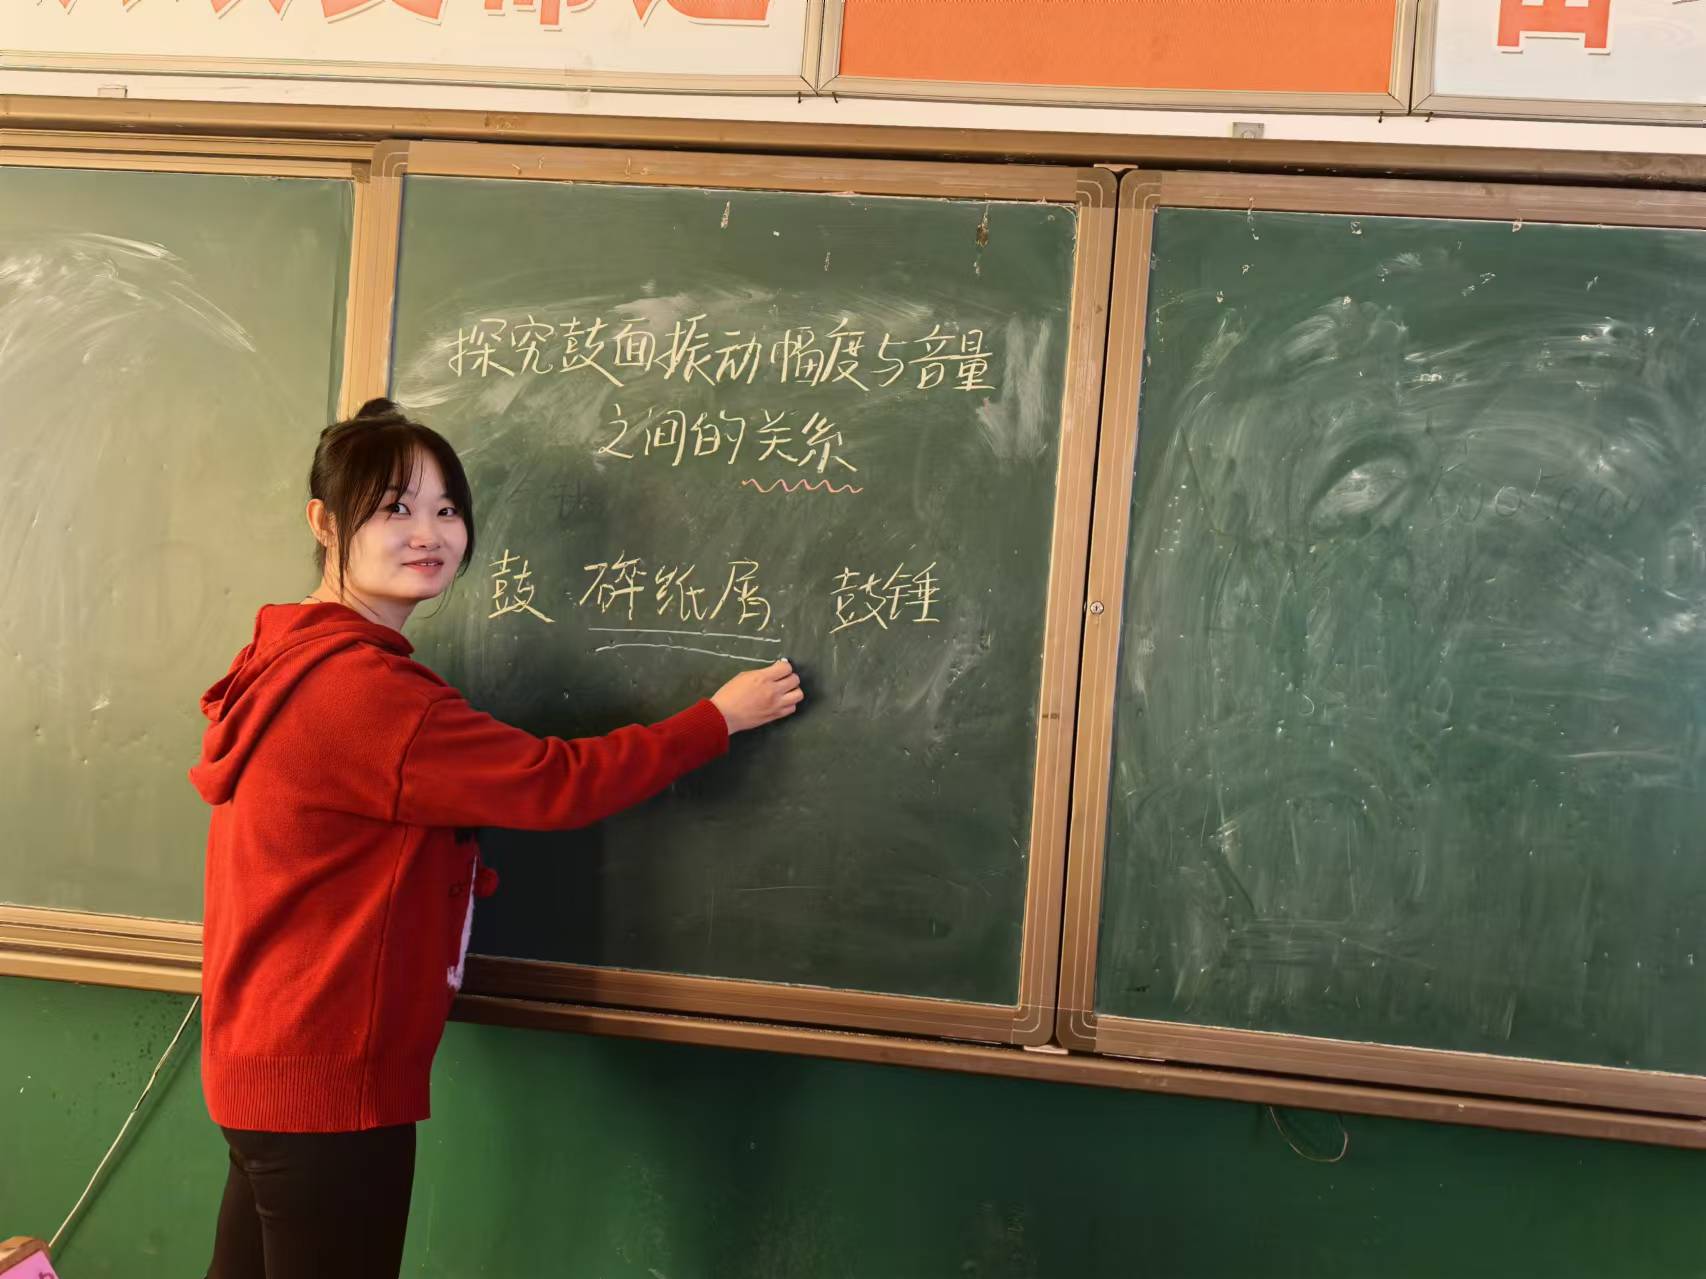 探究鼓面振动幅度与音量
之间的关系
鼓 碎纸屑 鼓锤